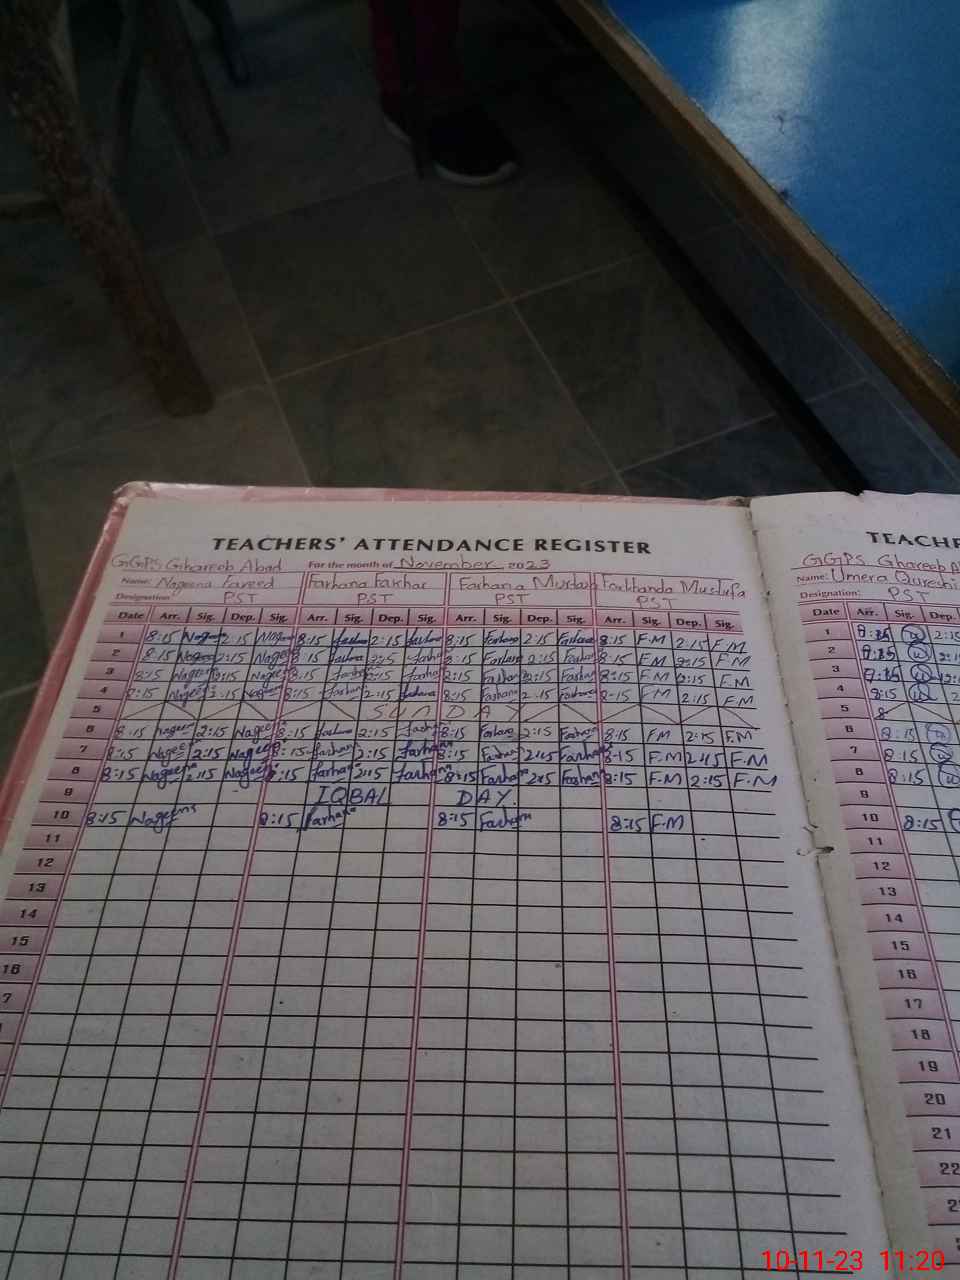 TEACHERS' ATTENDANCE REGISTER
GGPS Ghareeb Abad For the month of November 2023
Name: Nageena Fareed Farhana Fakhar Farhana Murtaza Farkhanda Mustafa
Designation: PST PST PST PST
Date Arr. Sig. Dep. Sig. Arr. Sig. Dep. Sig. Arr. Sig. Dep. Sig. Arr. Sig. Dep. Sig.
1 8:15 Nageena 2:15 Nageena 8:15 Farhana 2:15 Farhana 8:15 Farhana 2:15 Farhana 8:15 F.M 2:15 F.M
2 8:15 Nageena 2:15 Nageena 8:15 Farhana 2:15 Farhana 8:15 Farhana 2:15 Farhana 8:15 F.M 2:15 F.M
3 8:15 Nageena 2:15 Nageena 8:15 Farhana 2:15 Farhana 8:15 Farhana 2:15 Farhana 8:15 F.M 2:15 F.M
4 8:15 Nageena 2:15 Nageena 8:15 Farhana 2:15 Farhana 8:15 Farhana 2:15 Farhana 8:15 F.M 2:15 F.M
5 SUNDAY
6 8:15 Nageena 2:15 Nageena 8:15 Farhana 2:15 Farhana 8:15 Farhana 2:15 Farhana 8:15 F.M 2:15 F.M
7 8:15 Nageena 2:15 Nageena 8:15 Farhana 2:15 Farhana 8:15 Farhana 2:15 Farhana 8:15 F.M 2:15 F.M
8 8:15 Nageena 2:15 Nageena 8:15 Farhana 2:15 Farhana 8:15 Farhana 2:15 Farhana 8:15 F.M 2:15 F.M
9 IQBAL DAY
10 8:15 Nageena 8:15 Farhana 8:15 Farhana 8:15 F.M
11
12
13
14
15
16
7
TEACHE
GGPS Ghareeb A
Name: Umera Qureshi
Designation: PST
Date Arr. Sig. Dep.
1 8:15 2:15
2 8:15
3 8:15
4 8:15
5 8
6 8:15
7 8:15
8 8:15
9
10 8:15
11
12
13
14
15
16
17
18
19
20
21
22
10-11-23 11:20